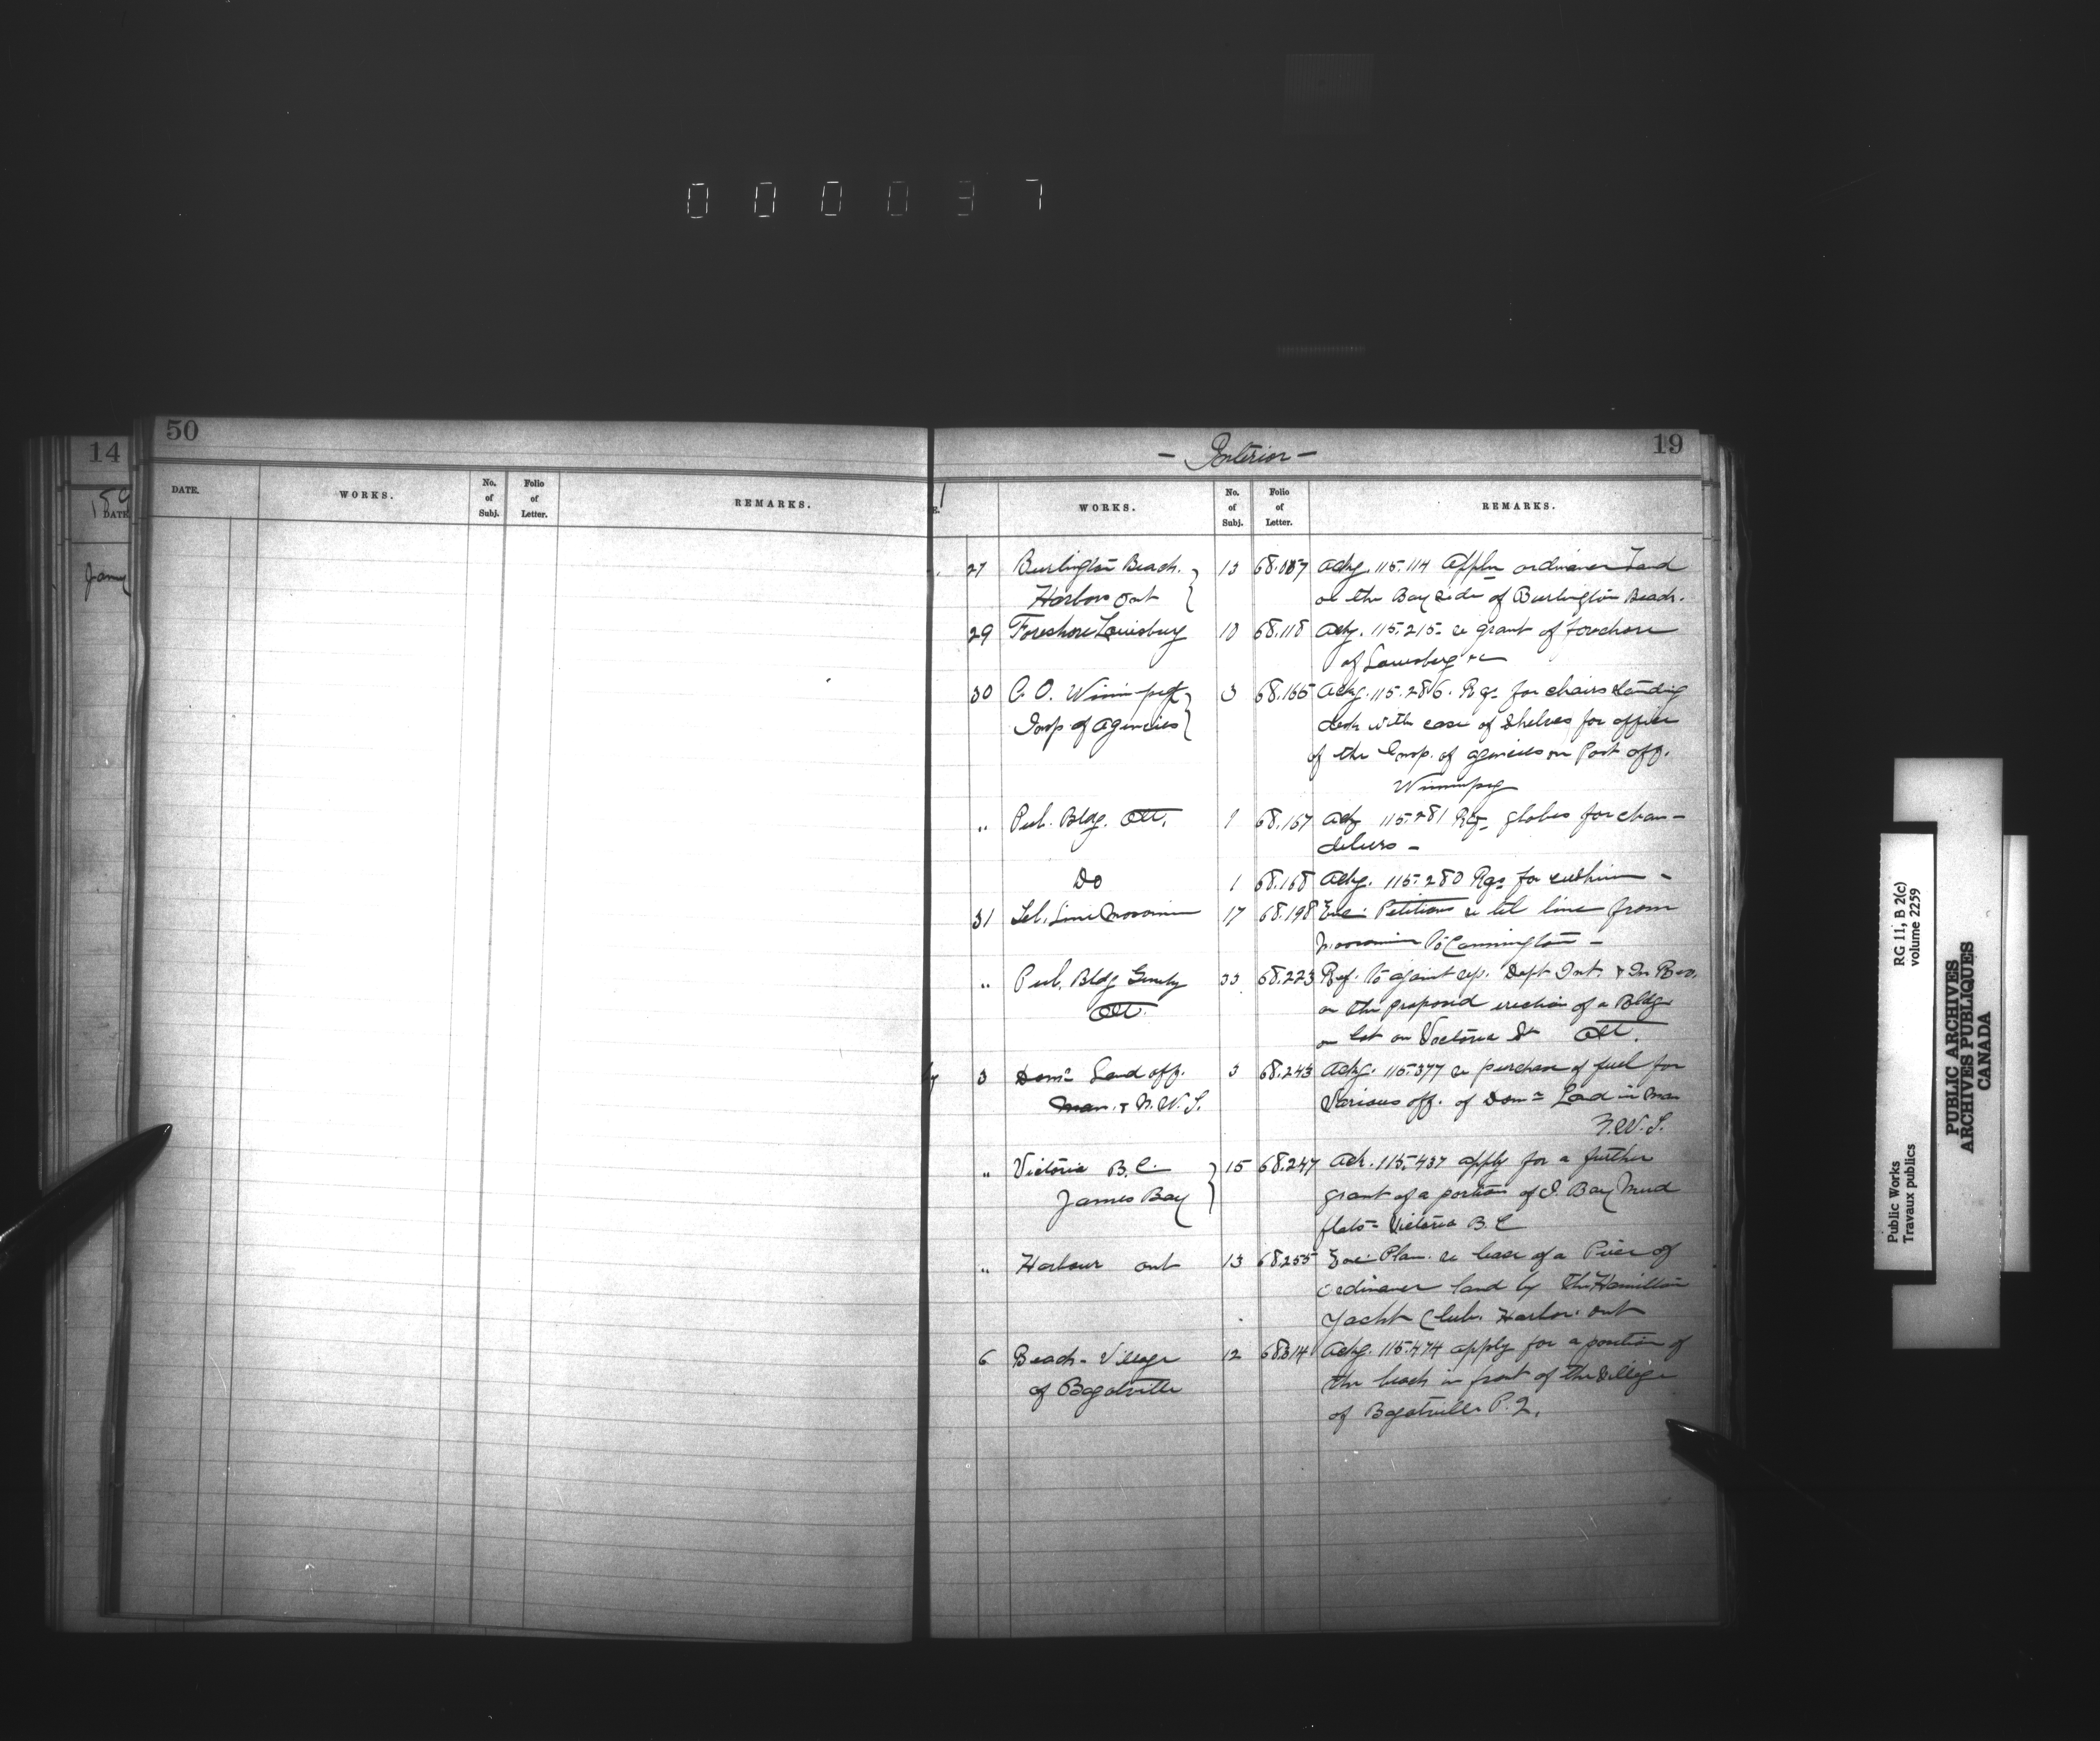 0 0 0 0 3 7
14
DATE
Jany
50
DATE. WORKS. No. of Subj. Folio of Letter. REMARKS.
- Interior - 19
WORKS. No. of Subj. Folio of Letter. REMARKS.
27 Burlington Beach. 13 Ackg. 115.114 Appln ordinance Land
Harbour Ont on the Bay side of Burlington Beach.
29 Foreshore Louisburg 10 68.118 Ackg. 115.215 re grant of foreshore
of Louisburg &c
30 P. O. Winnipeg 3 68.165 Ackg. 115.286. Rqs for chairs standing
Insp of Agencies desk with case of shelves for office
of the Insp. of agencies on Post off.
Winnipeg
" Pub. Bldg. Ott. 1 68.167 Ackg 115.281 Rqs globes for chan-
deliers -
Do 1 68.168 Ackg. 115.280 Rqs for cushion -
31 Tel. Line Moosomin 17 68.198 Enc. Petitions re tel line from
Moosomin to Cannington -
" Pub. Bldg Genly 33 68.223 Ref. to joint rep. Dept Int. & In Rev.
Ott. on the proposed erection of a Bldg
on lot on Victoria St Ott.
y 3 Domn Land off. 3 68.243 Ackg. 115.377 re purchase of fuel for
Man. & N.W.T. Various off. of Domn Land in Man
N.W.T.
" Victoria B.C. 15 68.247 Ack. 115.437 apply for a further
James Bay grant of a portion of J. Bay Mud
flats - Victoria B.C
" Harbour Ont 13 68.255 Enc. Plan. re lease of a Piece of
ordinance land by the Hamilton
Yacht Club. Harbor. Ont
6 Beach - Village 12 68314 Ackg. 115.474 apply for a portion of
of Bagotville the beach in front of the Village
of Bagotville P.Q.
Public Works
Travaux publics
RG 11, B 2(c)
volume 2259
PUBLIC ARCHIVES
ARCHIVES PUBLIQUES
CANADA